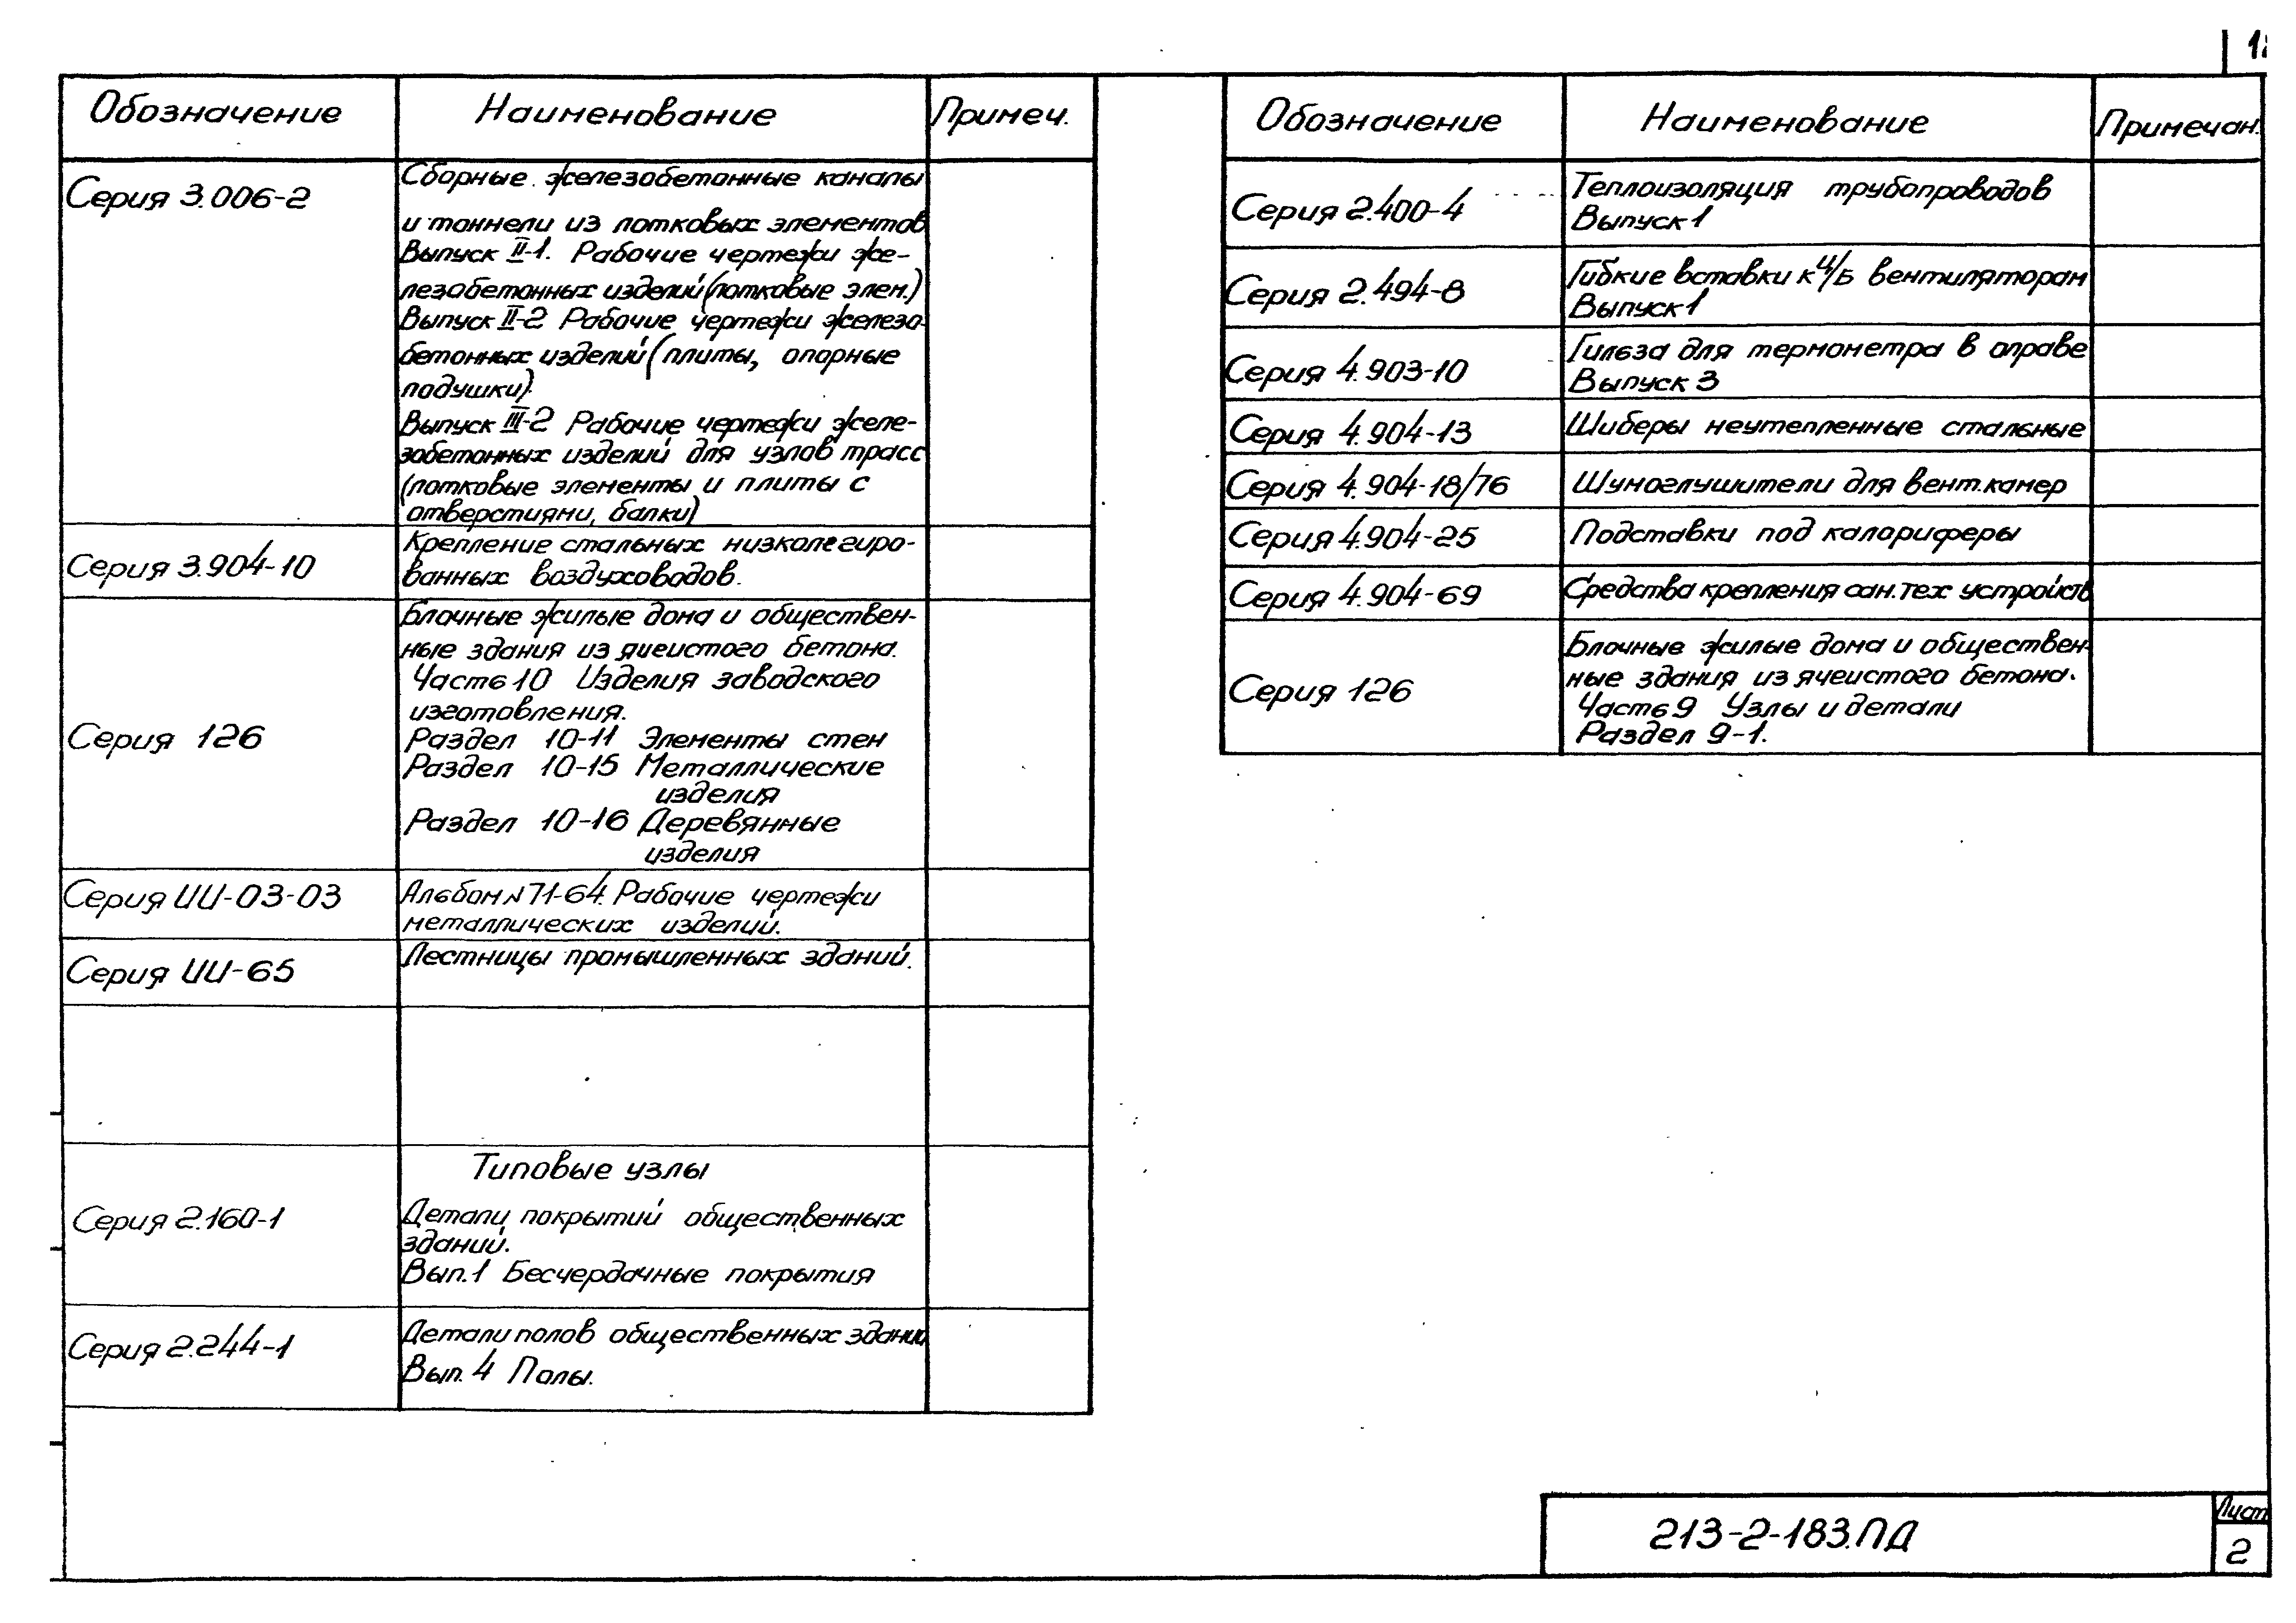 Обозначение
Наименование
Примеч.
Серия 3.006-2
Сборные железобетонные каналы
и тоннели из лотковых элементов
Выпуск II-1. Рабочие чертежи же-
лезобетонных изделий (лотковые элем.)
Выпуск II-2 Рабочие чертежи железо-
бетонных изделий (плиты, опорные
подушки).
Выпуск III-2 Рабочие чертежи желе-
зобетонных изделий для узлов трасс
(лотковые элементы и плиты с
отверстиями, балки)
Серия 3.904-10
Крепление стальных низколегиро-
ванных воздуховодов.
Серия 126
Блочные жилые дома и обществен-
ные здания из ячеистого бетона.
Часть 10 Изделия заводского
изготовления.
Раздел 10-11 Элементы стен
Раздел 10-15 Металлические
изделия
Раздел 10-16 Деревянные
изделия
Серия ИИ-03-03
Альбом №71-64. Рабочие чертежи
металлических изделий.
Серия ИИ-65
Лестницы промышленных зданий.
Типовые узлы
Серия 2.160-1
Детали покрытий общественных
зданий.
Вып.1 Бесчердачные покрытия
Серия 2.244-1
Детали полов общественных зданий
Вып. 4 Полы.
Обозначение
Наименование
Примечан.
Серия 2.400-4
Теплоизоляция трубопроводов
Выпуск 1
Серия 2.494-8
Гибкие вставки к ц/б вентиляторам
Выпуск 1
Серия 4.903-10
Гильза для термометра в оправе
Выпуск 3
Серия 4.904-13
Шиберы неутепленные стальные
Серия 4.904-18/76
Шумоглушители для вент.камер
Серия 4.904-25
Подставки под калориферы
Серия 4.904-69
Средства крепления сан.тех устройств
Серия 126
Блочные жилые дома и обществен-
ные здания из ячеистого бетона.
Часть 9 Узлы и детали
Раздел 9-1.
213-2-183.ПД
Лист
2